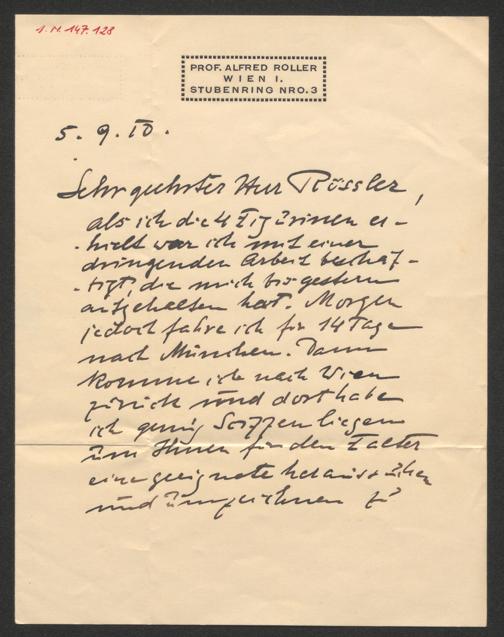 I. N. 147.128
PROF. ALFRED ROLLER
WIEN I.
STUBENRING NRO. 3
5. 9. 10.
Sehr geehrter Herr Rössler,
als ich die 4 Figürinen er-
hielt war ich mit einer
dringenden Arbeit beschäf-
tigt, die mich bis gestern
aufgehalten hat. Morgen
jedoch fahre ich für 14 Tage
nach München. Dann
komme ich nach Wien
zürück und dort habe
ich genug liegen
üm Ihnen für den Falter
eine geeignete
und ümzeichnen zü